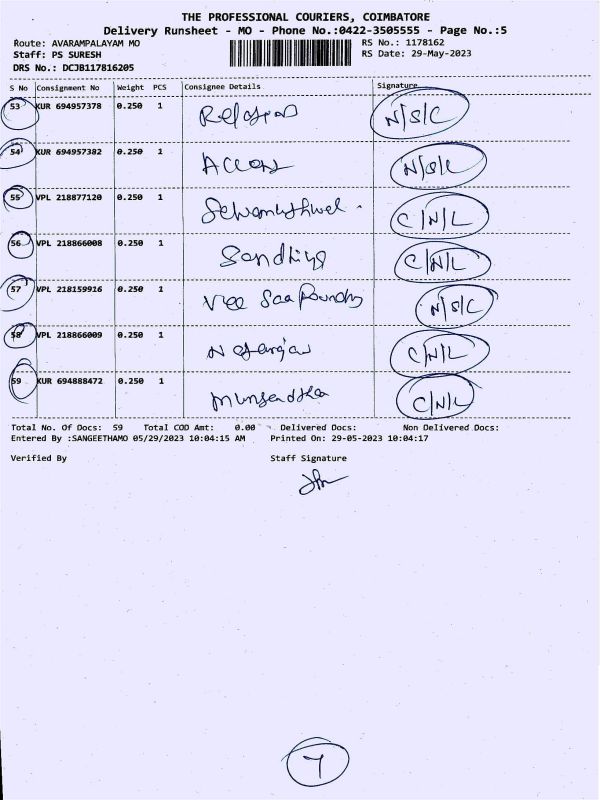 THE PROFESSIONAL COURIERS, COIMBATORE
Delivery Runsheet - MO - Phone No.:0422-3505555 - Page No.:5
Route: AVARAMPALAYAM MO RS No.: 1178162
Staff: PS SURESH RS Date: 29-May-2023
DRS No.: DCJB117816205
S No Consignment No Weight PCS Consignee Details Signature
53 KUR 694957378 0.250 1 N/S/C
54 KUR 694957382 0.250 1 N/S/C
55 VPL 218877120 0.250 1 C/N/L
56 VPL 218866008 0.250 1 Sandhiya C/N/L
57 VPL 218159916 0.250 1 N/S/C
58 VPL 218866009 0.250 1 C/N/L
59 KUR 694888472 0.250 1 C/N/L
Total No. Of Docs: 59 Total COD Amt: 0.00 Delivered Docs: Non Delivered Docs:
Entered By :SANGEETHAMO 05/29/2023 10:04:15 AM Printed On: 29-05-2023 10:04:17
Verified By Staff Signature
7